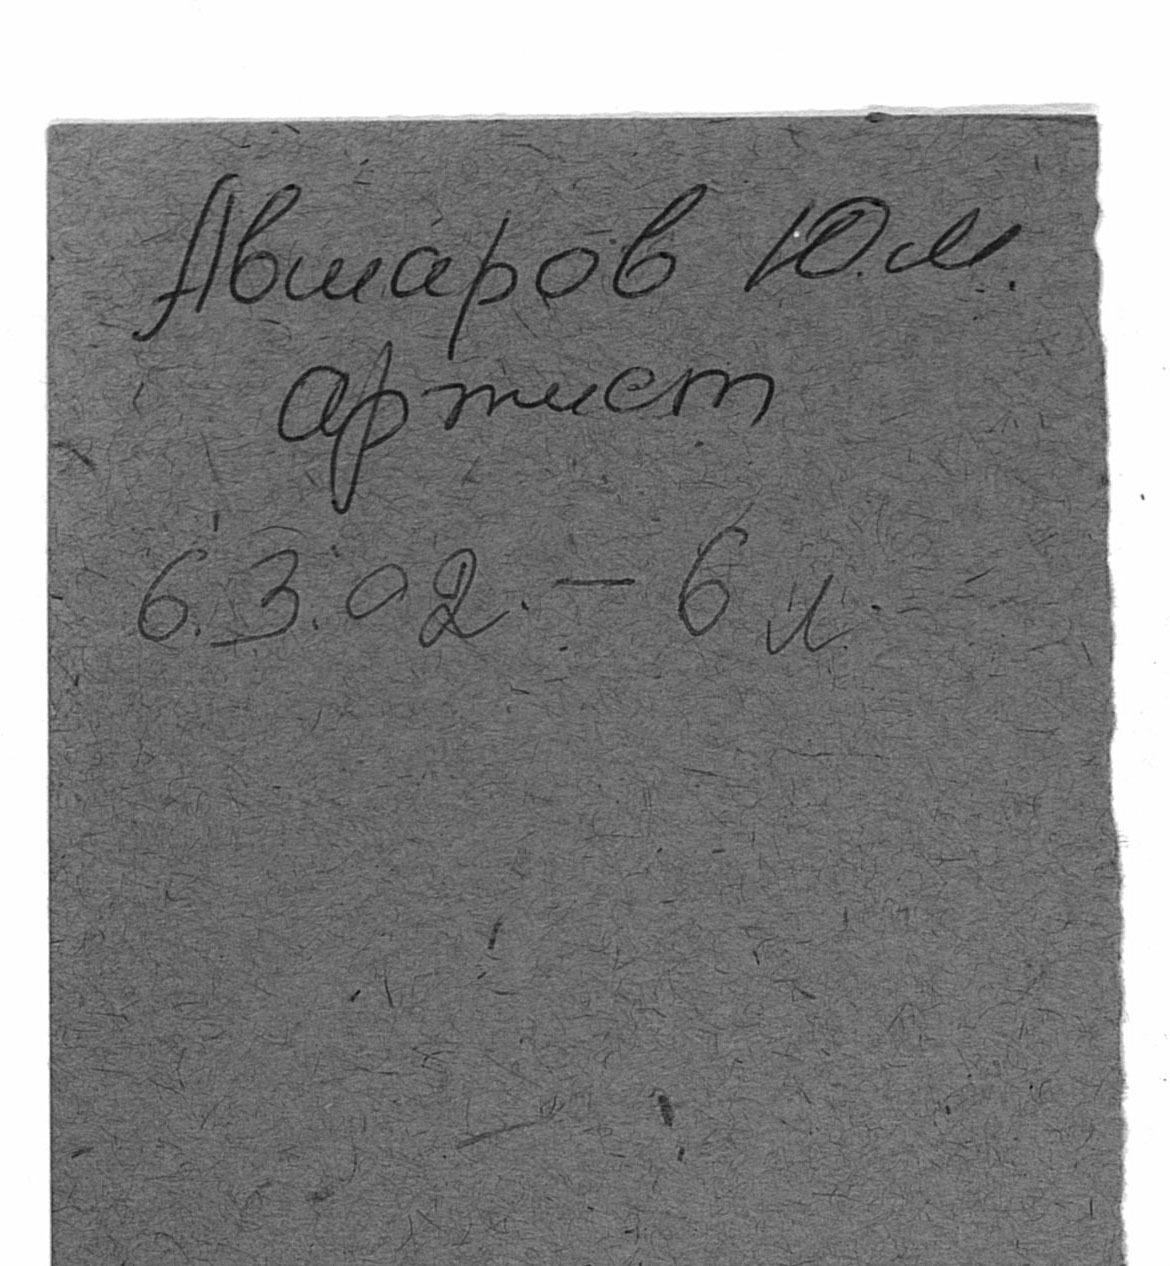 Авшаров Ю.М.
артист
6.3.02. - 6 л.